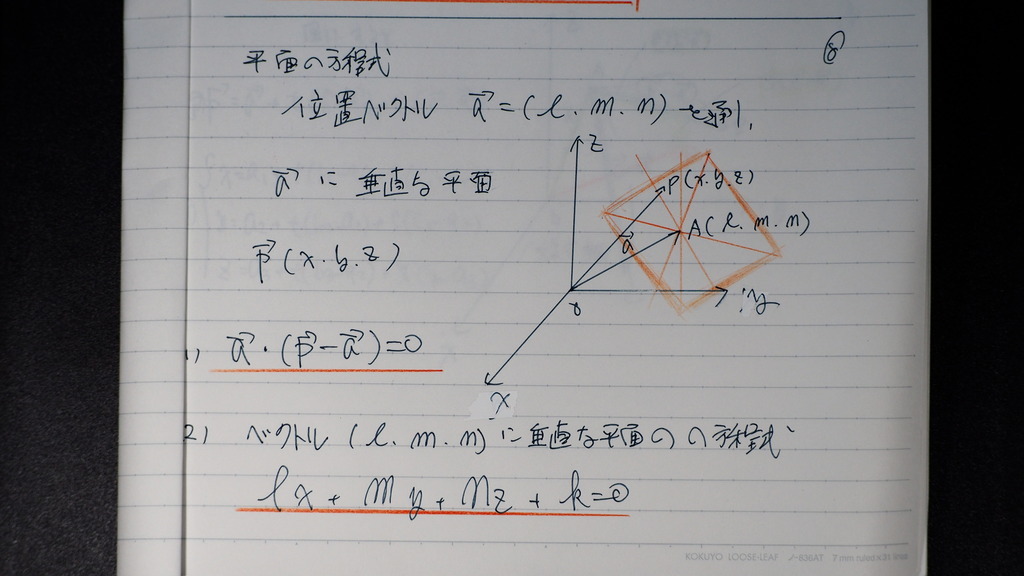 ⑧
平面の方程式
位置ベクトル a⃗ = (l. m. n) を通り.
a⃗ に 垂直な 平面
p⃗ (x. y. z)
z
P (x. y. z)
A (l. m. n)
a⃗
o
y
x
1) a⃗・(p⃗-a⃗)=0
2) ベクトル (l. m. n) に垂直な平面の の方程式
lx + my + nz + k=0
KOKUYO LOOSE-LEAF ノ-836AT 7 mm ruled×31 lines